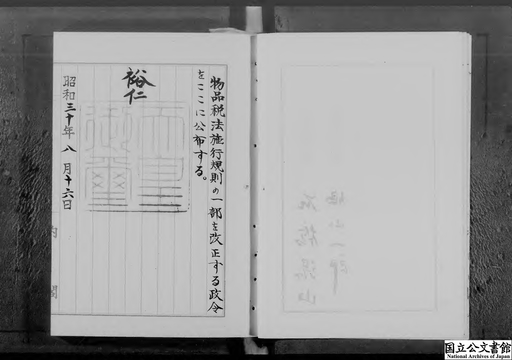 物品税法施行規則の一部を改正する政令
をここに公布する。
裕仁
昭和三十年八月十六日
内閣
国立公文書館
National Archives of Japan